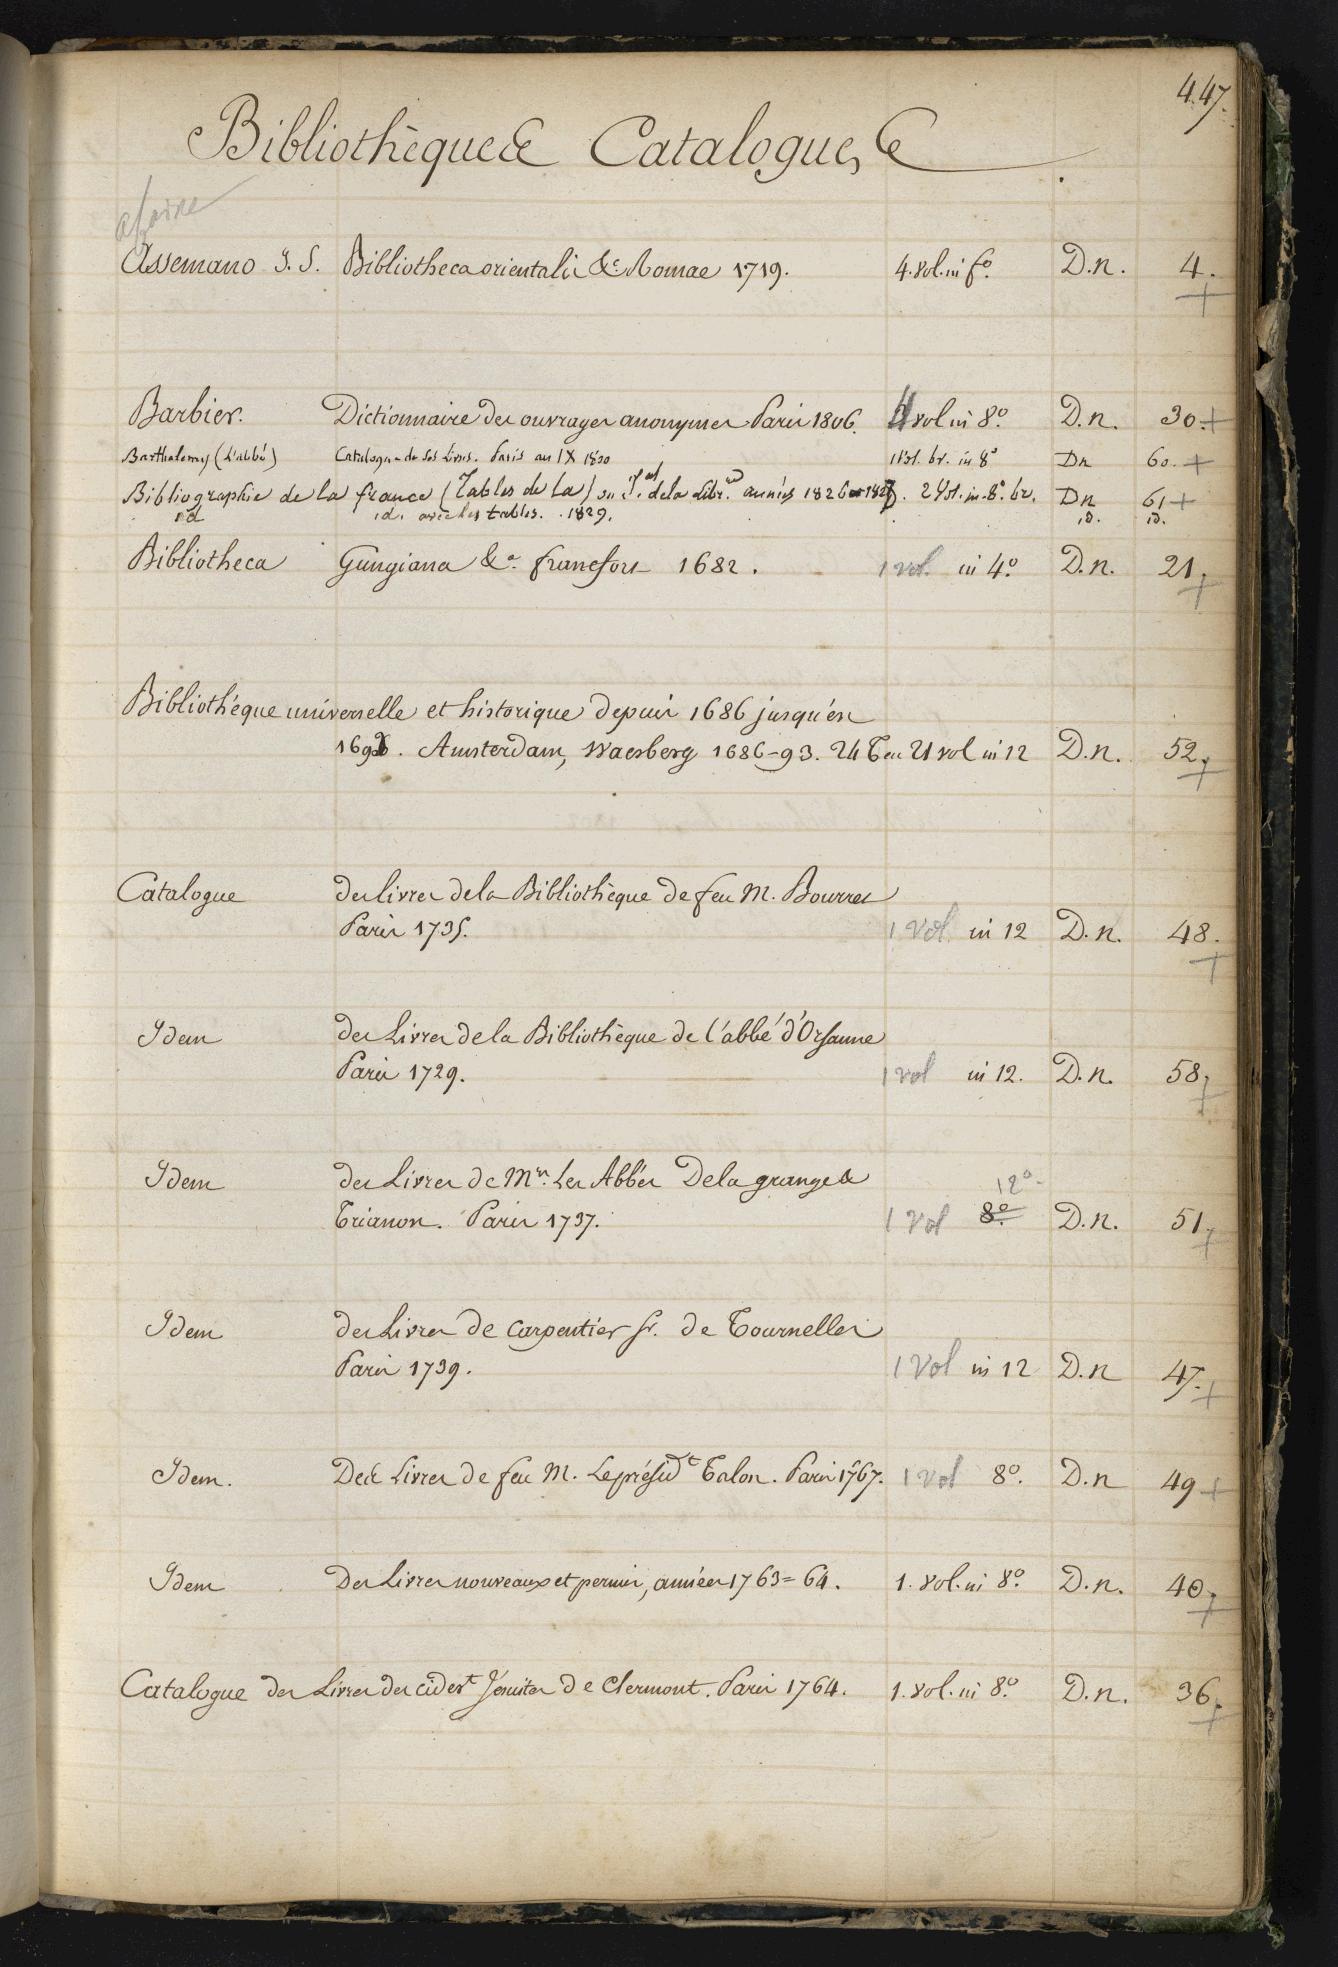 447.
Bibliothèques Catalogues
a faire
Assemano J. S. Bibliotheca orientalis &c. Romae 1719. 4. vol. in fo. D. n. 4.
Barbier. Dictionnaire des ouvrages anonymes Paris 1806. 4 vol in 8o. D. n. 30.
Barthelemy (L'abbé) Catalogue de ses Livres. Paris an IX 1800 1 vol. br. in 8o Dn 60.
Bibliographie de la france (Tables de la) ou Jal. de la Libr. années 1826 1827. 2 Vol. in-8o br. Dn 61
id id. avec les tables. 1829. id. id.
Bibliotheca Gungiana &a. francfort 1682. 1 vol. in 4o. D. n. 21.
Bibliothèque universelle et historique depuis 1686 jusqu'en
1693. Amsterdam, Waesberg 1686-93. 24 T en 21 vol in 12 D. n. 52.
Catalogue des livres de la Bibliothèque de feu M. Bourret
Paris 1735. 1 Vol. in 12 D. n. 48.
Idem des Livres de la Bibliothèque de l'abbé d'Orsanne
Paris 1729. 1 vol in 12. D. n. 58.
Idem des Livres de Mrs. Les Abbés Delagrange &
12o
Trianon. Paris 1737. 1 Vol 8o. D. n. 51.
Idem des Livres de Carpentier sr. de Tournelles
Paris 1739. 1 Vol in 12 D. n 47.
Idem. Des Livres de feu M. Le présidt Talon. Paris 1767. 1 Vol 8o. D. n 49
Idem Des Livres nouveaux et permis, années 1763=64. 1. vol. in 8o. D. n. 40.
Catalogue des Livres des cidevt Jésuites de Clermont. Paris 1764. 1. vol. in 8o. D. n. 36.